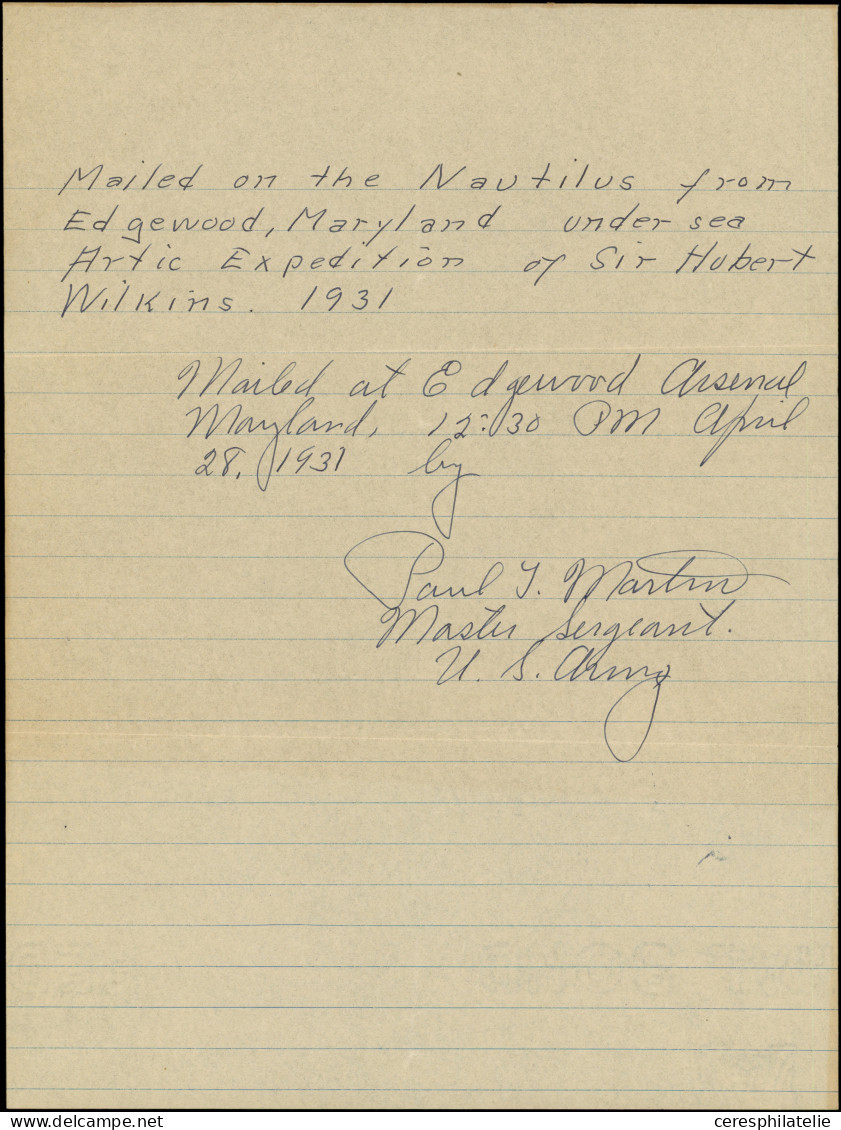 Mailed on the Nautilus from
Edgewood, Maryland under sea
Artic Expedition of Sir Hubert
Wilkins. 1931
Mailed at Edgewood Arsenal
Maryland, 12:30 PM April
28, 1931 by
Paul J. Martin
Master Sergeant.
U. S. Army
www.delcampe.net
ceresphilatelie